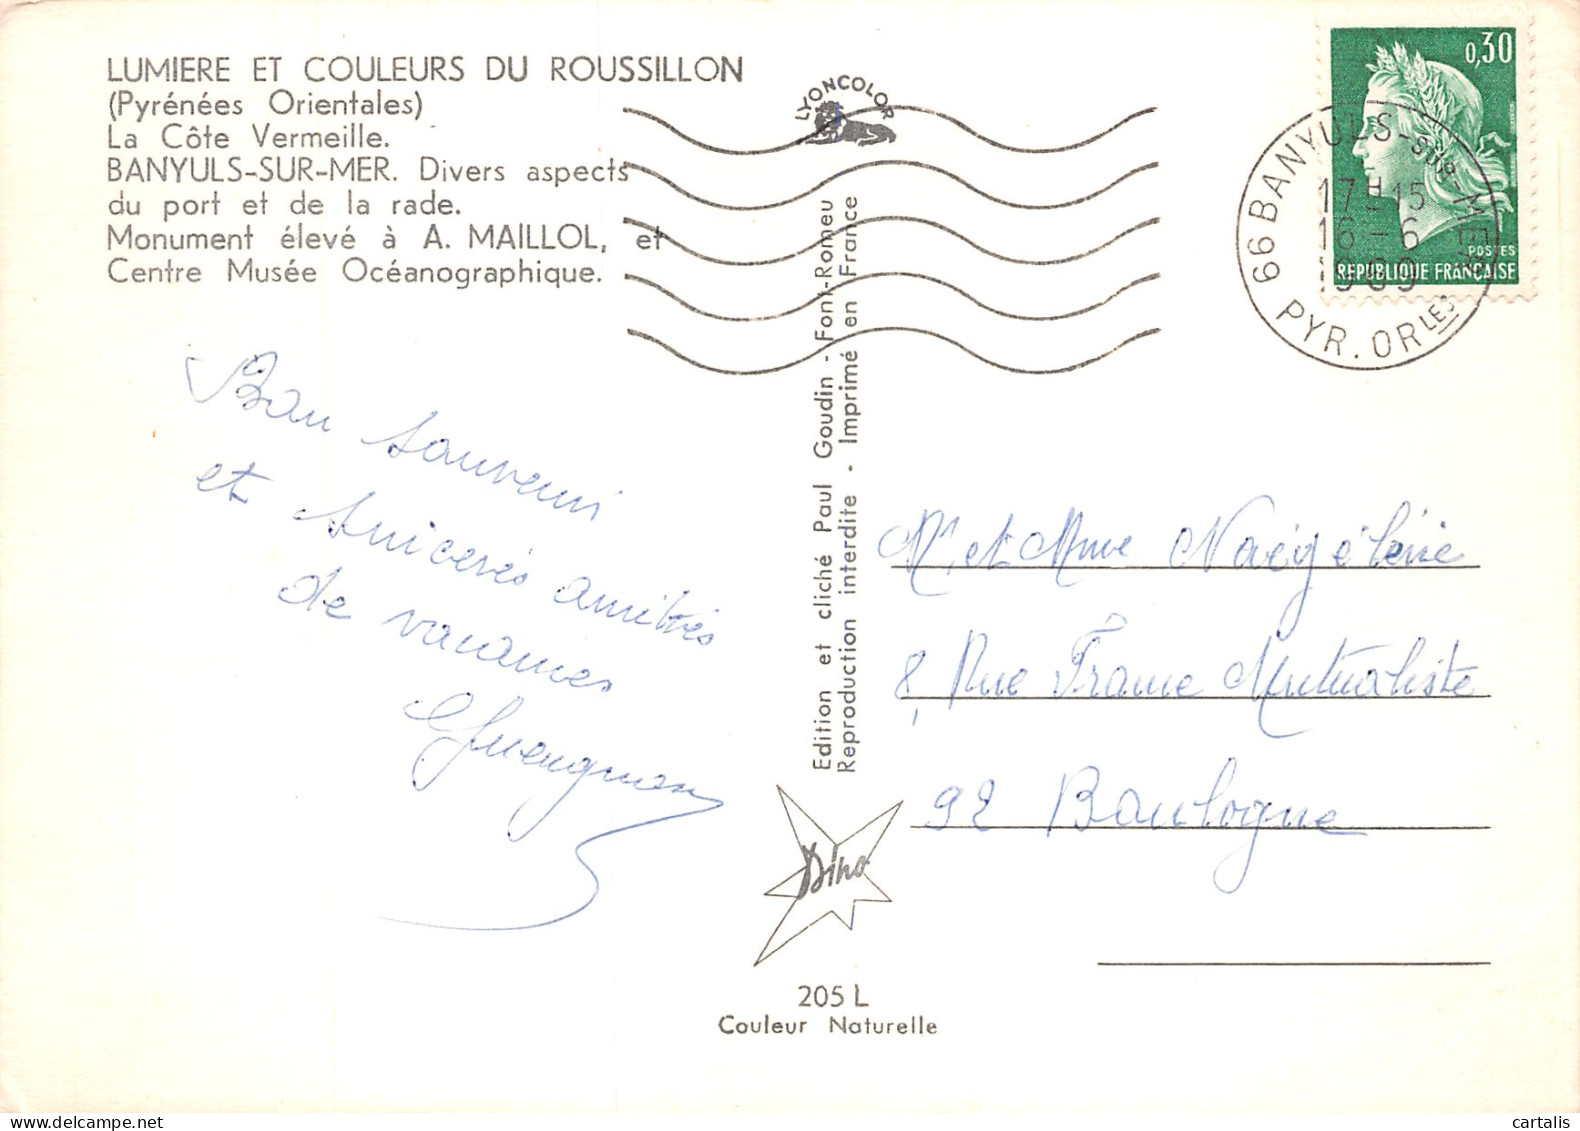 LUMIERE ET COULEURS DU ROUSSILLON
(Pyrénées Orientales)
La Côte Vermeille.
BANYULS-SUR-MER. Divers aspects
du port et de la rade.
Monument élevé à A. MAILLOL, et
Centre Musée Océanographique.
LYONCOLOR
0,30
POSTES
REPUBLIQUE FRANÇAISE
66 BANYULS-SUR-MER
17H15
16-6
1969
PYR. ORLES
Bon souvenir
et sincères amitiés
de vacances
Edition et cliché Paul Goudin - Font-Romeu
Reproduction interdite - Imprimé en France
Mr et Mme
8, Rue France Mutualiste
92 Boulogne
Dino
205 L
Couleur Naturelle
cartalis